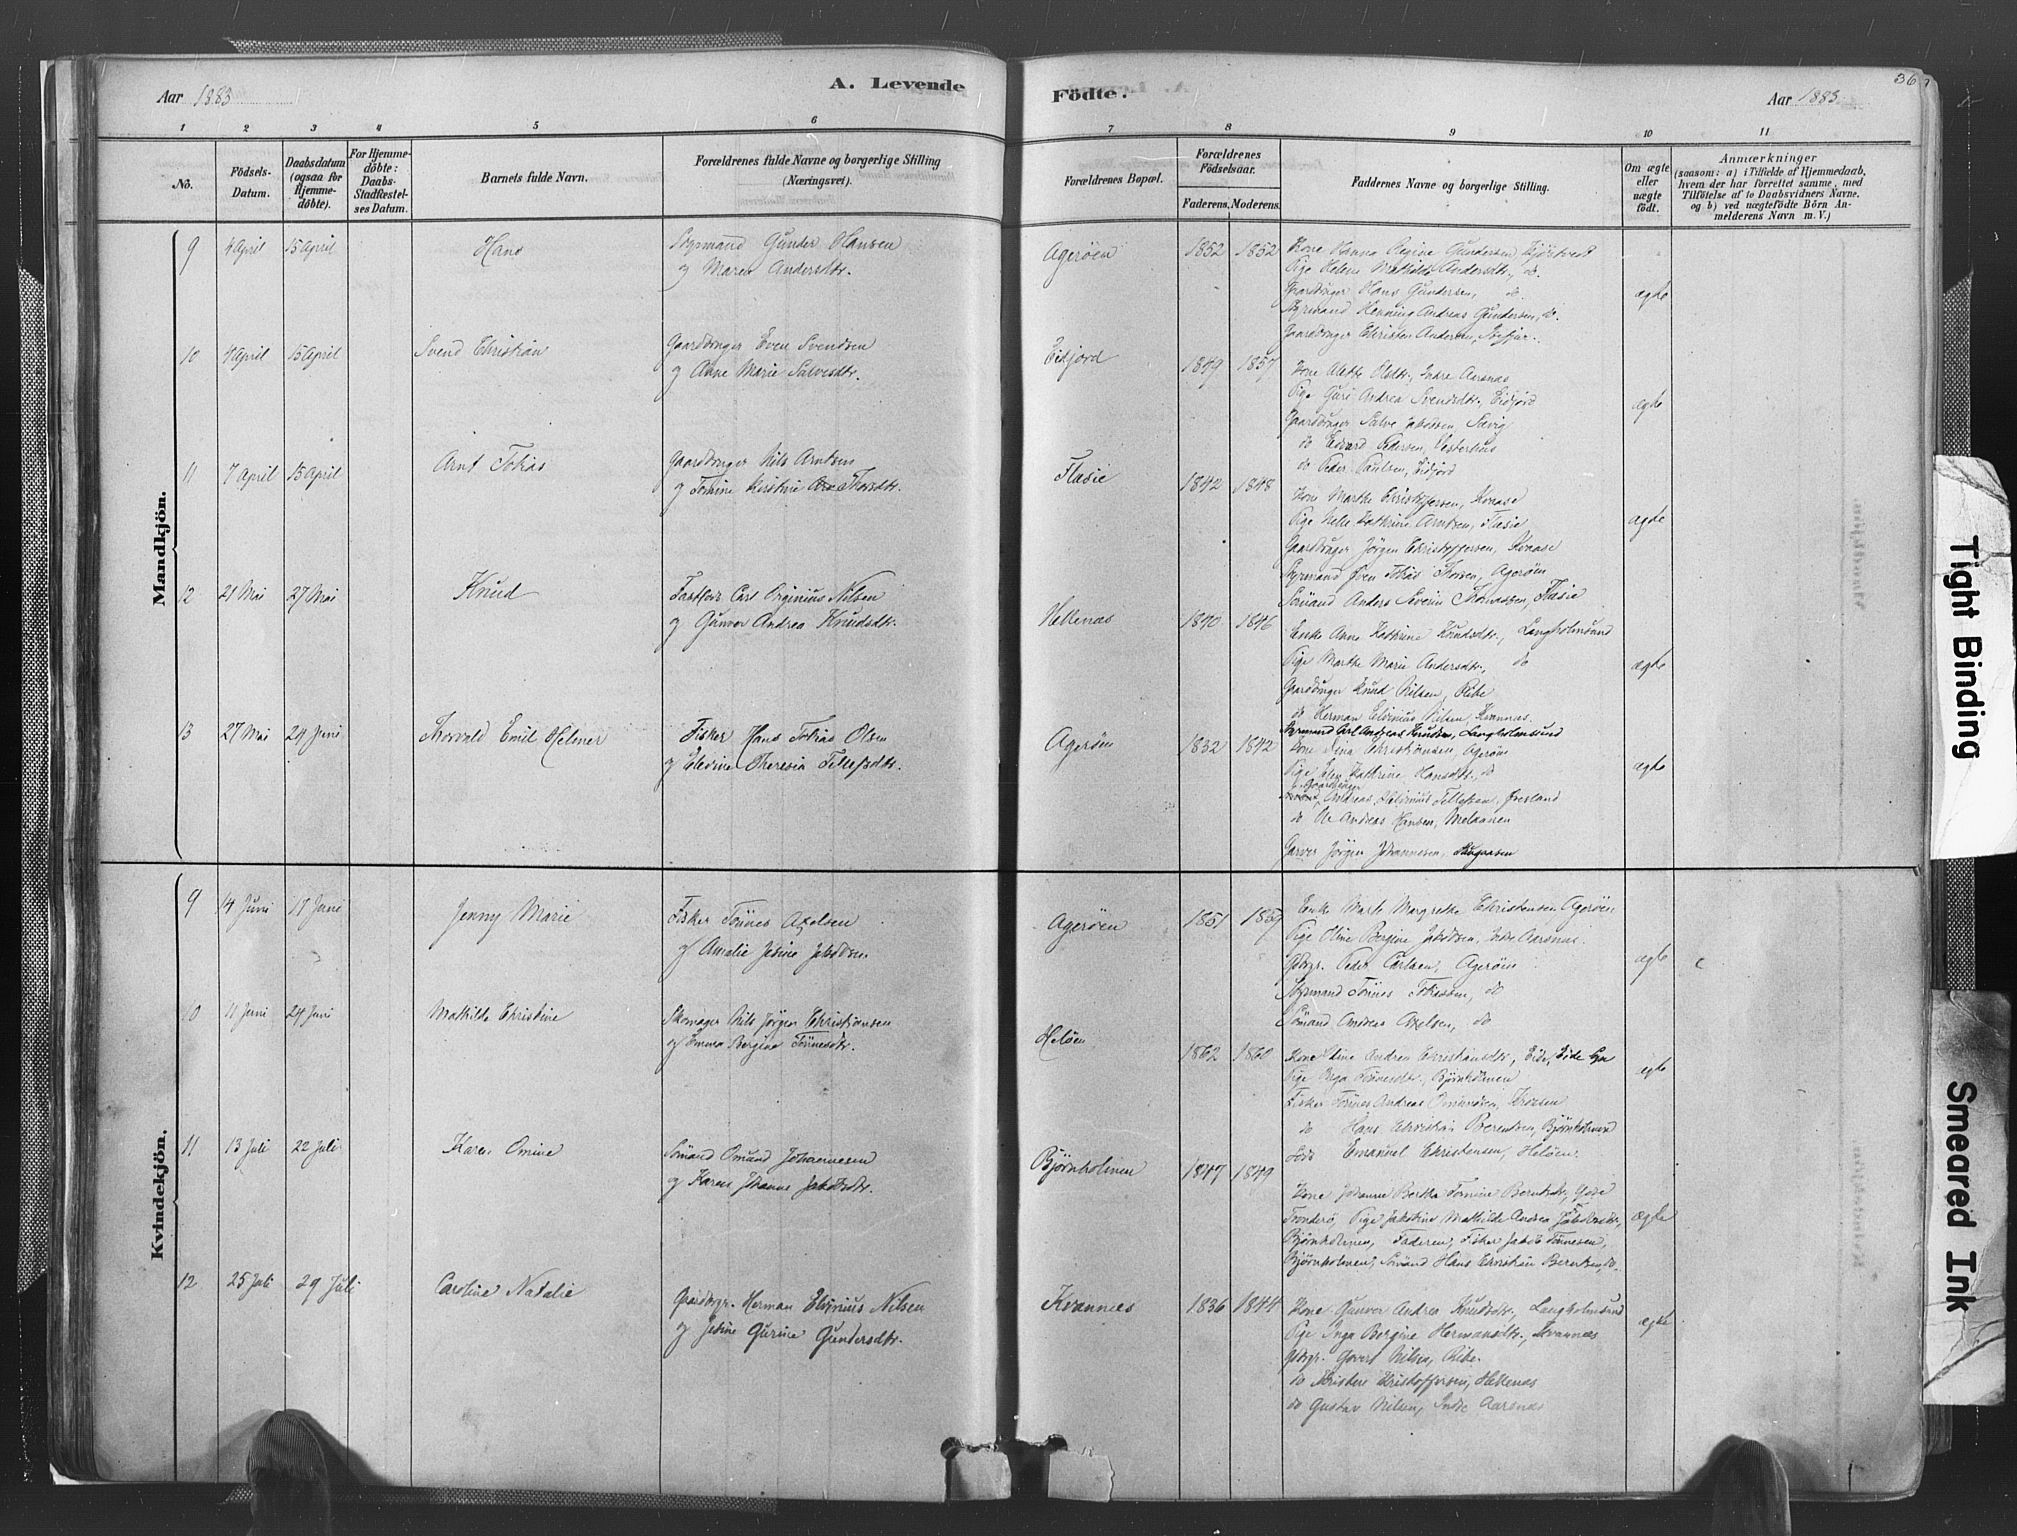 Aar 1883
A. Levende
Födte.
Aar 1883
36
1 2 3 4 5 6 7 8 9 10 11
No.
Födsels-
Datum.
Daabsdatum
(ogsaa for
Hjemme-
döbte).
For Hjemme-
döbte:
Daabs-
Stadfæstel-
ses Datum.
Barnets fulde Navn.
Forældrenes fulde Navne og borgerlige Stilling
(Næringsvei).
Forældrenes Bopæl.
Forældrenes
Födselsaar.
Faderens. Moderens.
Faddernes Navne og borgerlige Stilling.
Om ægte
eller
uægte
födt.
Anmærkninger
(saasom: a) i Tilfælde af Hjemmedaab,
hvem der har forrettet samme, med
Tilföielse af to Daabsvidners Navne.
og b) ved uægtefödte Börn An-
melderens Navn m. V.)
Mandkjön.
9 4 April 15 April Hans
Styrmand Gunder Hansen
og Maren Andersdtr.
Agerøen 1852 1852
Kone Hanna Regine Gundersen
Pige Helene Mathilde Andersdtr., do.
Gaardbruger Hans Gundersen, do.
Styrmand Henning Andreas Gundersen, do.
Gaardbruger Christen Andersen,
ægte
10 4 April 15 April Svend Christian
Gaardbruger Even Svendsen
og Anne Marie Salvesdtr.
Eidjord 1849 1857
Kone Alette Olsdtr., Indre Aarsnæs
Pige Guri Andrea Svendsdtr., Eidjord
Gaardbruger Salve Jakobsen, Sævig
do Edvard Pedersen, Vesterhus
do Peder Paulsen, Eidjord
ægte
11 7 April 15 April Arnt Tobias
Gaardbruger Nils Arntsen
og Tomine Kirstine Thorsdtr.
Flasie 1842 1848
Kone Marthe Christoffersen, Kvaase
Pige Nelle Kathrine Arntsen, Flasie
Gaardbruger Jörgen Christoffersen, Kvaase
Styrmand Sven Tobias Thorsen, Agerøen
Sömand Anders Severin Thomassen, Flasie
ægte
12 21 Mai 27 Mai Knud
Carl Nilsen
og Gunvor Andrea Knudsdtr.
Hellenæs 1840 1846
Enke Anne Kathrine Knudsdtr., Langholmsund
Pige Marthe Marie Andersdtr., do
Gaardbruger Knud Nilsen, Ribe
do Herman Elvinius Nilsen, Kvannæs
Styrmand Carl Andreas Knudsen, Langholmsund
ægte
13 27 Mai 24 Juni Thorvald Emil Helmer
Fisker Hans Tobias Olsen
og Elevine Theresia Tellefsdtr.
Agerøen 1832 1842
Kone Christiansen, Agerøen
Pige Kathrine Hansdtr., do
Gaardbruger
Andreas Tellefsen,
do Ole Andreas Hansen,
Garver Jörgen Johannesen,
ægte
Kvindekjön.
9 14 Juni 17 Juni Jenny Marie
Fisker Tönnes Axelsen
og Amalie Jesine Jakobsen
Agerøen 1851 1859
Enke Marte Margrethe Christensen Agerøen
Pige Oline Bergine Jakobsen, Indre Aarsnæs.
Gdbrgr. Peder Carlsen, Agerøen
Styrmand Tönnes Tobiassen, do
Sömand Andreas Axelsen, do
ægte
10 11 Juni 24 Juni Mathilde Christine
Skomager Nils Jörgen Christiansen
og Emma Bergine Tönnesdtr.
Heløen 1862 1860
Kone Andrea Christiansdtr., Eide, Eide Sgn
Pige Inga Tönnesdtr., Bjørnholmen
Fisker Tönnes Andreas
do Hans Christian Berentsen, Bjørnholmen
Emanuel Christensen, Heløen
ægte
11 13 Juli 22 Juli Karen Omine
Sömand Omund Johannesen
og Karen Johanne Jakobsdtr.
Bjørnholmen 1847 1849
Kone Johanne Bertha Tomine Berntsdtr.,
Pige Jakobine Mathilde Andrea Jakobsdtr.,
Bjørnholmen, Faderen, Fisker Jakob Tönnesen,
Bjørnholmen, Sömand Hans Christian Berentsen, do.
ægte
12 25 Juli 29 Juli Caroline Natalie
Gaardbrgr. Herman Elvinius Nilsen
og Jesine Gurine Gundersdtr.
Kvannæs 1836 1844
Kone Gunvor Andrea Knudsdtr., Langholmsund
Pige Inga Bergine Hermansdtr., Kvannæs
Gdbrgr. Govert Nilsen, Ribe.
do Kristen Christoffersen, Hellenæs
do Gustav Nilsen, Indre Aarsnæs
ægte
Tight Binding
Smeared Ink